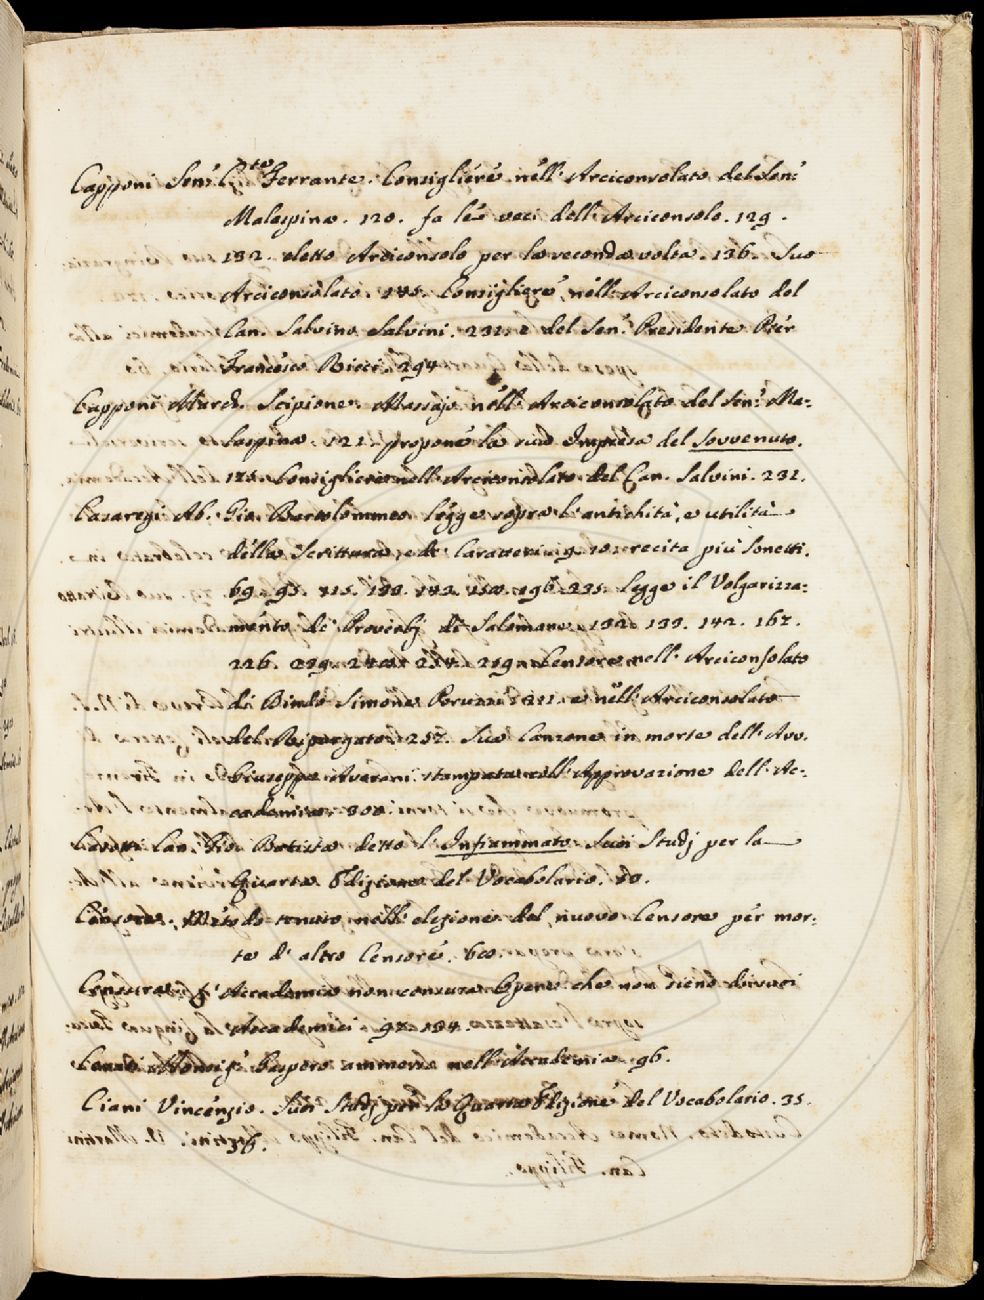 Capponi Sen.r C.te Ferrante. Consigliere nell'Arciconsolato del Sen.r
Malespina. 120. fa le veci dell'Arciconsolo. 129.
132. eletto Arciconsolo per la seconda volta. 136. Suo
Arciconsolato. 145. Consigliere nell'Arciconsolato del
Can. Salvino Salvini. 231. e del Sen.r Presidente Pier
Francesco Ricci. 294.
Capponi March. Scipione. Massajo nell'Arciconsolato del Sen.r Ma=
laspina. 121. propone la sua Impresa del Sovvenuto.
Consigliere nell'Arciconsolato del Can. Salvini. 231.
Casaregi Ab. Gio. Bartolommeo legge sopra l'antichità, e utilità
della Scrittura, e de' Caratteri. 9. 10. recita più Sonetti.
69. 95. 115. 142. 196. 225. legge il Volgarizza=
mento de' Proverbj di Salomone. 132. 133. 142. 167.
226. 239. 254. 259. Censore nell'Arciconsolato
di Bindo Simone Peruzzi. 211. e nell'Arciconsolato
del Ripurgato. 257. Sua Canzone in morte dell'Avv.
Giuseppe Averani stampata coll'Approvazione dell'Ac=
cademia. 300.
Can. Gio. Batista detto l'Infiammato. Suoi Studj per la
Quarta Edizione del Vocabolario. 50.
Censore. Metodo tenuto nell'elezione del nuovo Censore per mor=
te d'altro Censore. 60.
Censura. L'Accademia non censura Opere che non sieno di suoi
Accademici. 97. 104.
Monsig.r Gaspero ammesso nell'Accademia. 96.
Ciani Vincenzio. Suoi Studj per la Quarta Edizione del Vocabolario. 35.
38.